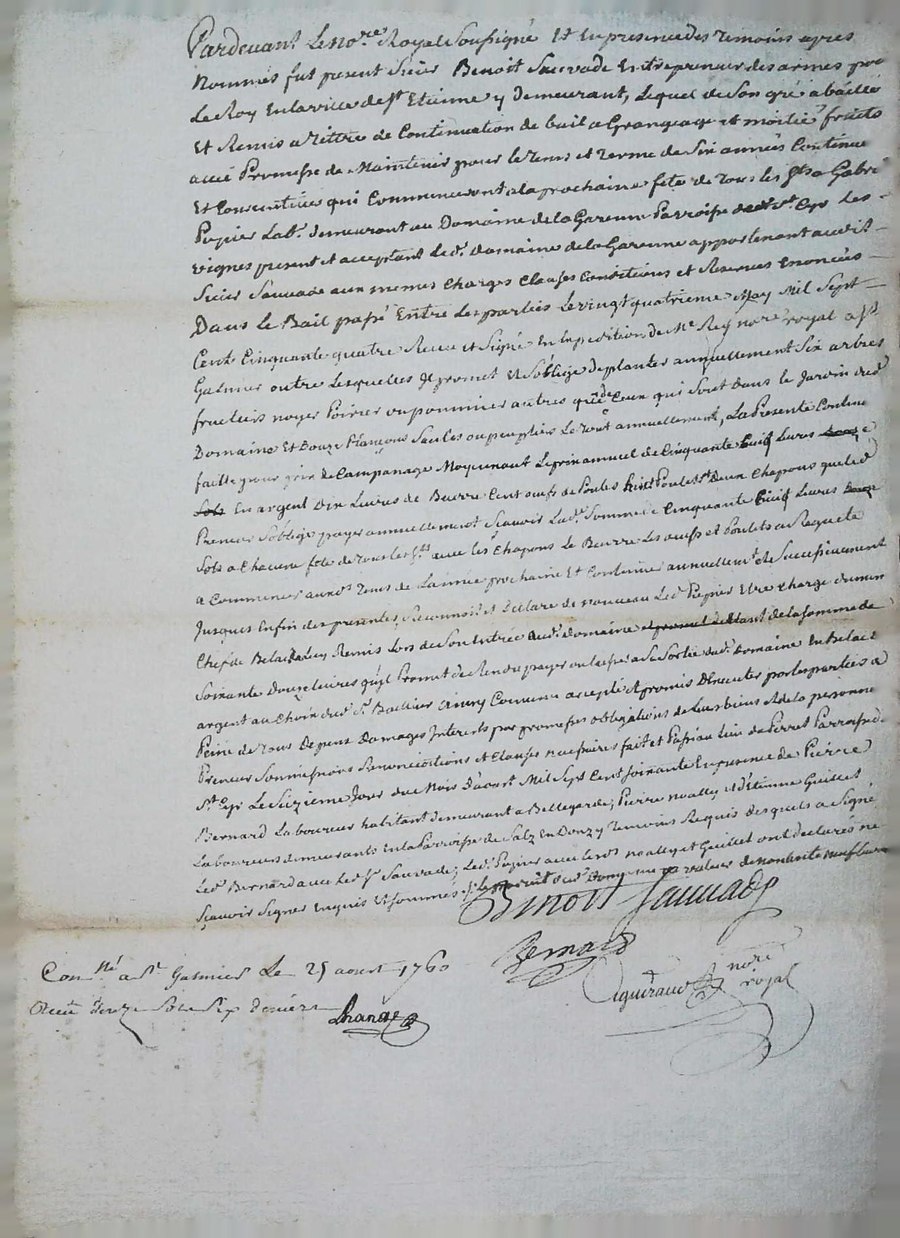 Pardevant Le no.re Royal Soussigné Et En presence des temoins apres
Nommés fut present Sieur Benoit Sauvade Entrepreneur des armes pour
Le Roy En la ville de S.t Etienne y demeurant, Lequel de Son gré a baillé
Et Remis a tittre de Continuation de bail a Grangeage et moitié fruits
avec Promesse de Maintenir pour le tems et terme de Six années Continue
Et Consecutives qui Commenceront a la prochaine fete de tous les S.ts a Gabri
Pupier Lab.r demeurant au Domaine de la Garenne Parroisse de S.t Cyr Les
vignes present et acceptant Led.t Domaine de la Garenne appartenant audit
Sieur Sauvade aux memes Charges Clauses Conditions et Reserves Enoncées
Dans Le Bail passé Entre Les parties Le vingt quatrieme May Mil Sept
Cent Cinquante quatre Receu et Signé En Expedition de M.e Rey no.re royal a S.t
Galmier outre Lesquelles Il promet Et S'oblige de planter annuellement Six arbres
fruitiers noyer Poirier ou pommier autres que de Ceux qui Sont Dans le Jardin dud.
Domaine Et Douze Plançons Saules ou peupliers Le tout annuellement, La Presente Contin
faitte pour prix de Campanage Moyennant Le prix annuel de Cinquante huit Livres
Sols En argent Dix Livres de Beurre Cent oeufs de Poules huit Poulets Deux Chapons que led
Preneur S'oblige payer annuellement Scavoir Lad.e Somme de Cinquante huit Livres
Sols a Chacune fete de tous les S.ts avec les Chapons Le Beurre Les oeufs et Poulets a Requete
a Commencer aux d. Tous de L'année prochaine Et Continuer annuellem.t et Successivement
Jusques Enfin des presentes, Reconnoit et Declare de nouveau Led. Pupier Etre Charge d'un
Chef de Betail a Luy Remis Lors de Son Entrée aud.t domaine de la Somme de
Soixante Douze Livres qu'il Promet de Rendre payer ou laisser a Sa Sortie dud. Domaine En Betail
argent au Choix dud. S.r Bailleur Ainsy Convenu accepté et promis Executer par les parties a
Peine de tous Depens Domages Interets par promesses obligations de Leurs biens et de la personne
Preneur Soumissions Renonciations et Clauses necessaires fait et Passé au Lieu de Parroisse de
S.t Cyr Le Sixieme Jour du Mois D'aoust Mil Sept Cent Soixante En presence de Pierre
Bernard Laboureur habitant demeurant a Bellegarde, Pierre noally et d'Etienne Guillet
Laboureurs demeurants En la Parroisse de Salt En Donzy Temoins Requis desquels a Signé
Led. Bernard avec Led. S.r Sauvade; Led. Pupier avec Lesd. noally et Guillet ont declarés ne
Scavoir Signer Enquis et Sommés valeur de nonante neuf livres
Benoit Sauvade
Bernard
Aguiraud no.re
royal
Con.llé a S.t Galmier Le 25 aoust 1760
Receu treze Sols Six deniers